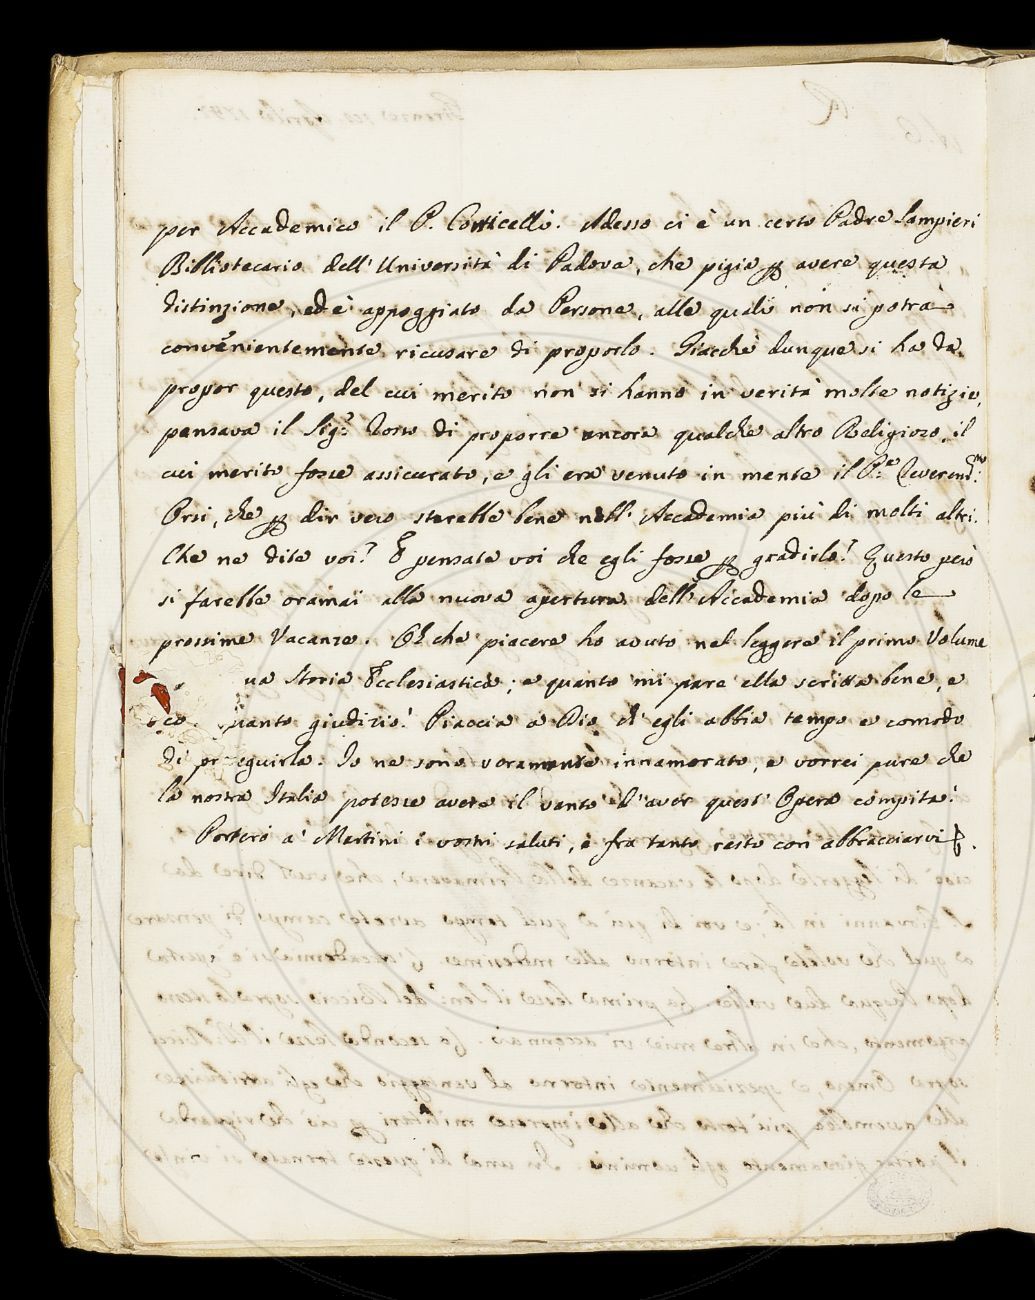 per Accademico il P. Corticelli. Adesso ci è un certo Padre Lampieri
Bibliotecario dell'Università di Padova, che pigia p avere questa
distinzione, ed è appoggiato da Persone, alle quali non si potrà
convenientemente ricusare di proporlo. Giacchè dunque si ha da
propor questo, del cui merito non si hanno in verità molte notizie,
pensava il Sig.r Torso di proporre ancora qualche altro Religioso, il
cui merito fosse assicurato, e gli era venuto in mente il P.re Reverend.mo
Orsi, che p dir vero starebbe bene nell'Accademia più di molti altri.
Che ne dite voi? E pensate voi che egli fosse p gradirlo? Questo però
si farebbe oramai alla nuova apertura dell'Accademia dopo le
prossime Vacanze. Oh che piacere ho avuto nel leggere il primo Volume
ua Storia Ecclesiastica; e quanto mi pare ella scritta bene, e
co quanto giudizio! Piaccia a Dio ch'egli abbia tempo e comodo
di pr eguirla. Io ne sono veramente innamorato, e vorrei pure che
la nostra Italia potesse avere il vanto d'aver quest'Opera compita!
Porterò a' Martini i vostri saluti, e fra tanto resto con abbracciarvi